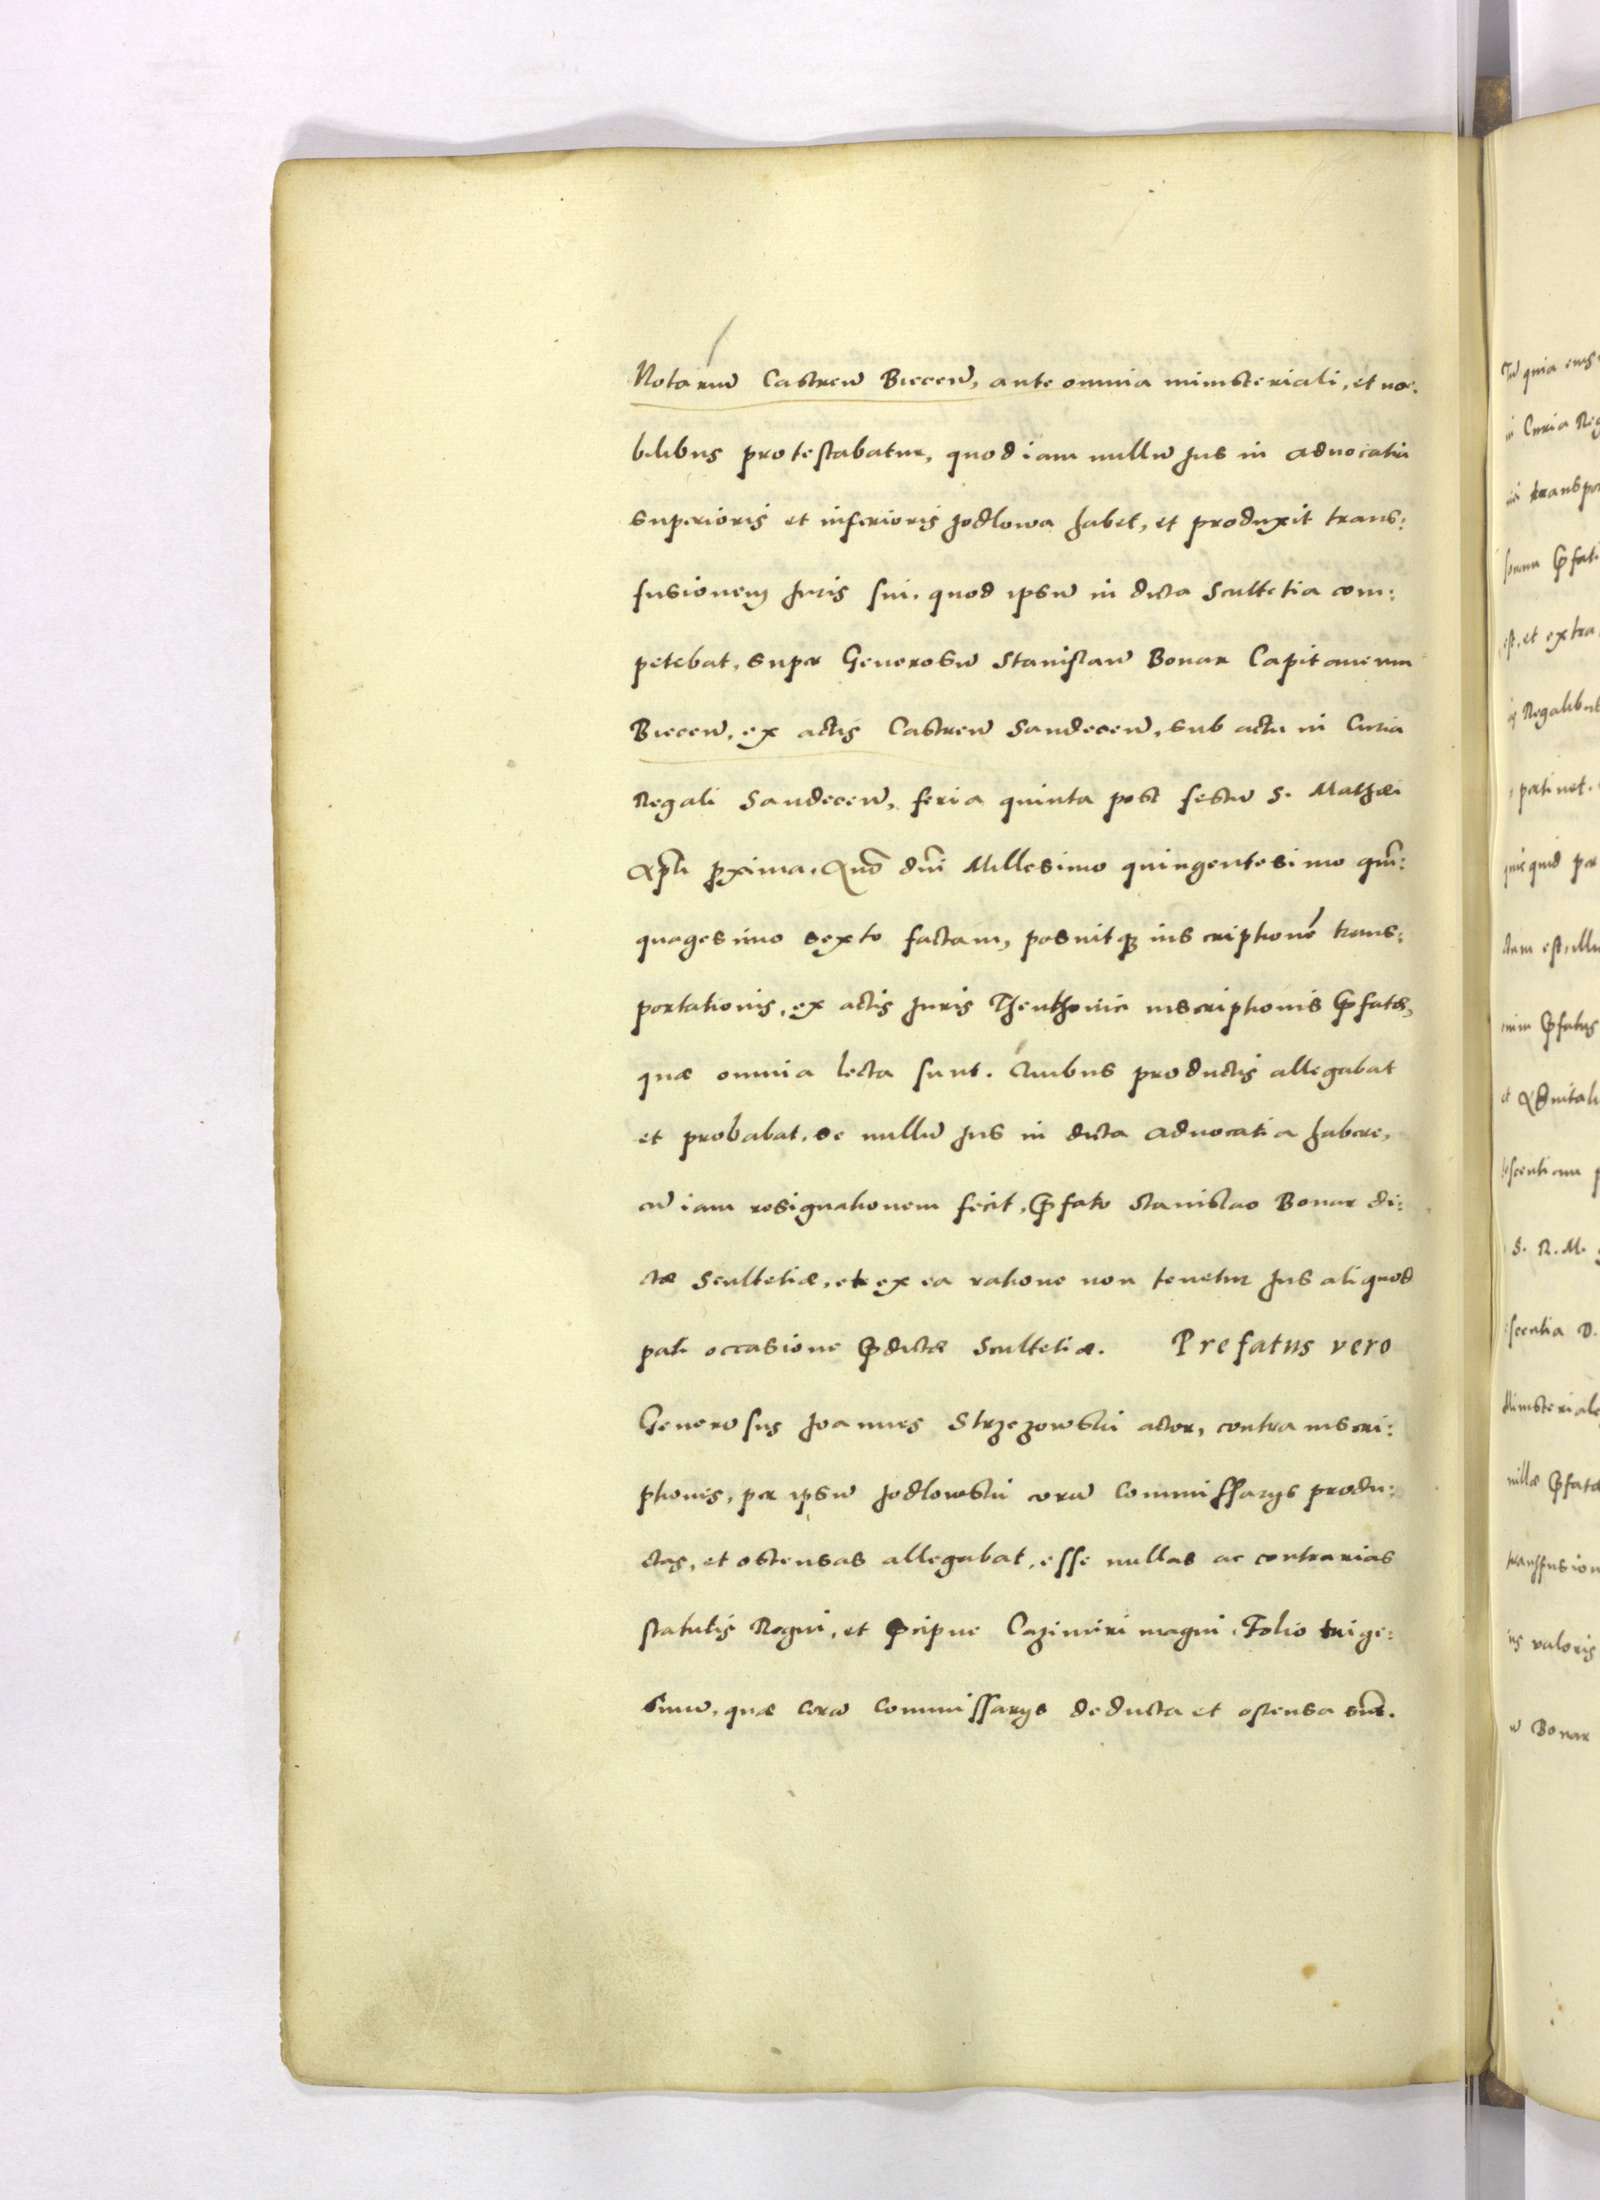 Notariũ Castreñ Bieceñ, ante omnia ministeriali, et no:
bilibus protestabatur, quod iam nullũ Jus in advocatia
superioris et inferioris Jodlowa habet, et produxit trans:
fusionem Juris sui. quod ipsũ in dicta Scultetia com:
petebat, super Generosũ Stanislaũ Bonar Capitaneum
Bieceñ, ex actis Castreñ Sandeceñ, sub actu in Curia
Regali Sandeceñ, feria quinta post festũ S. Mathæi
Apli pxima. Anno dni Millesimo quingentesimo quin:
quagesimo sexto factam, posuitq inscriptionẽ trans:
portationis, ex actis Juris Theuthonici inscriptionis pfatæ,
quæ omnia lecta sunt. Quibus productis allegabat
et probabat, se nullũ Jus in dicta advocatia habere,
cũ iam resignationem fecit, pfato Stanislao Bonar di:
ctæ Scultetiæ, et ex ea ratione non tenetur Jus aliquod
pati occasione pdictæ Scultetiæ. Prefatus vero
Generosus Joannes Strzezowski actor, contra inscri:
ptionis, per ipsũ Jodlowski corã Commissarys produ:
ctas, et ostensas allegabat, esse nullas ac contrarias
statutis Regni, et pcipue Cazimiri magni. Folio trige:
simũ, quæ corã Commissarys deducta et ostensa sũt.
Tũ quia eius
in Curia Reg
transpor
pfati
est, et extra
Regalibus
ptinet.
quicquid per
ctam est, illu
enim pfatus
et
S. R. M.
D.
Ministeriale
pfata
transfusion
ius valoris
Bonar